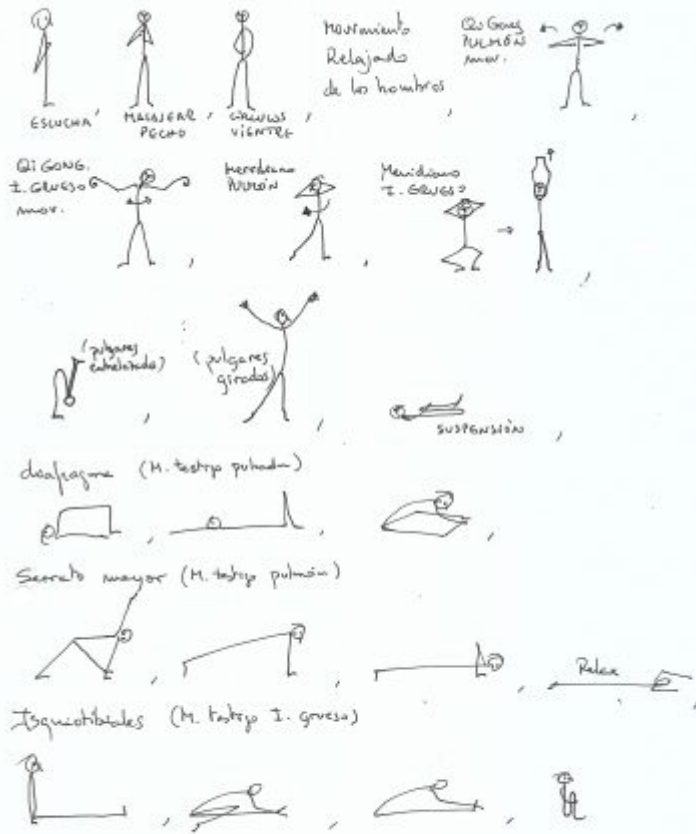 ESCUCHA,
MASAJEAR
PECHO,
CÍRCULOS
VIENTRE,
Movimiento
Relajado
de los hombros,
Qi Gong
PULMÓN
mov.
Qi GONG.
I. GRUESO
mov.
Meridiano
PULMÓN
Meridiano
I. GRUESO
(pulgares
entrelazados)
(pulgares
girados)
SUSPENSIÓN,
diafragma (M. testigo pulmón)
Serrato mayor (M. testigo pulmón)
Relax
Isquiotibiales (M. testigo I. grueso)